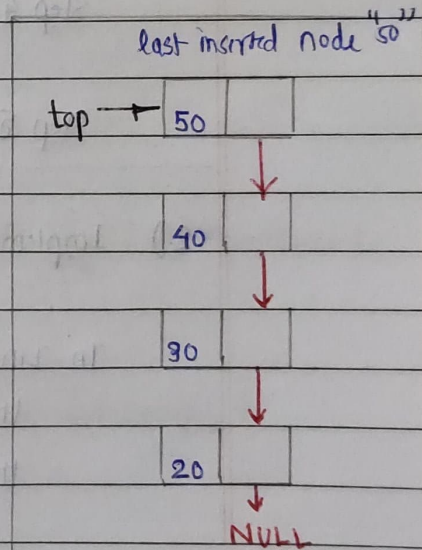 last inserted node "50"
top 50
40
30
20
NULL